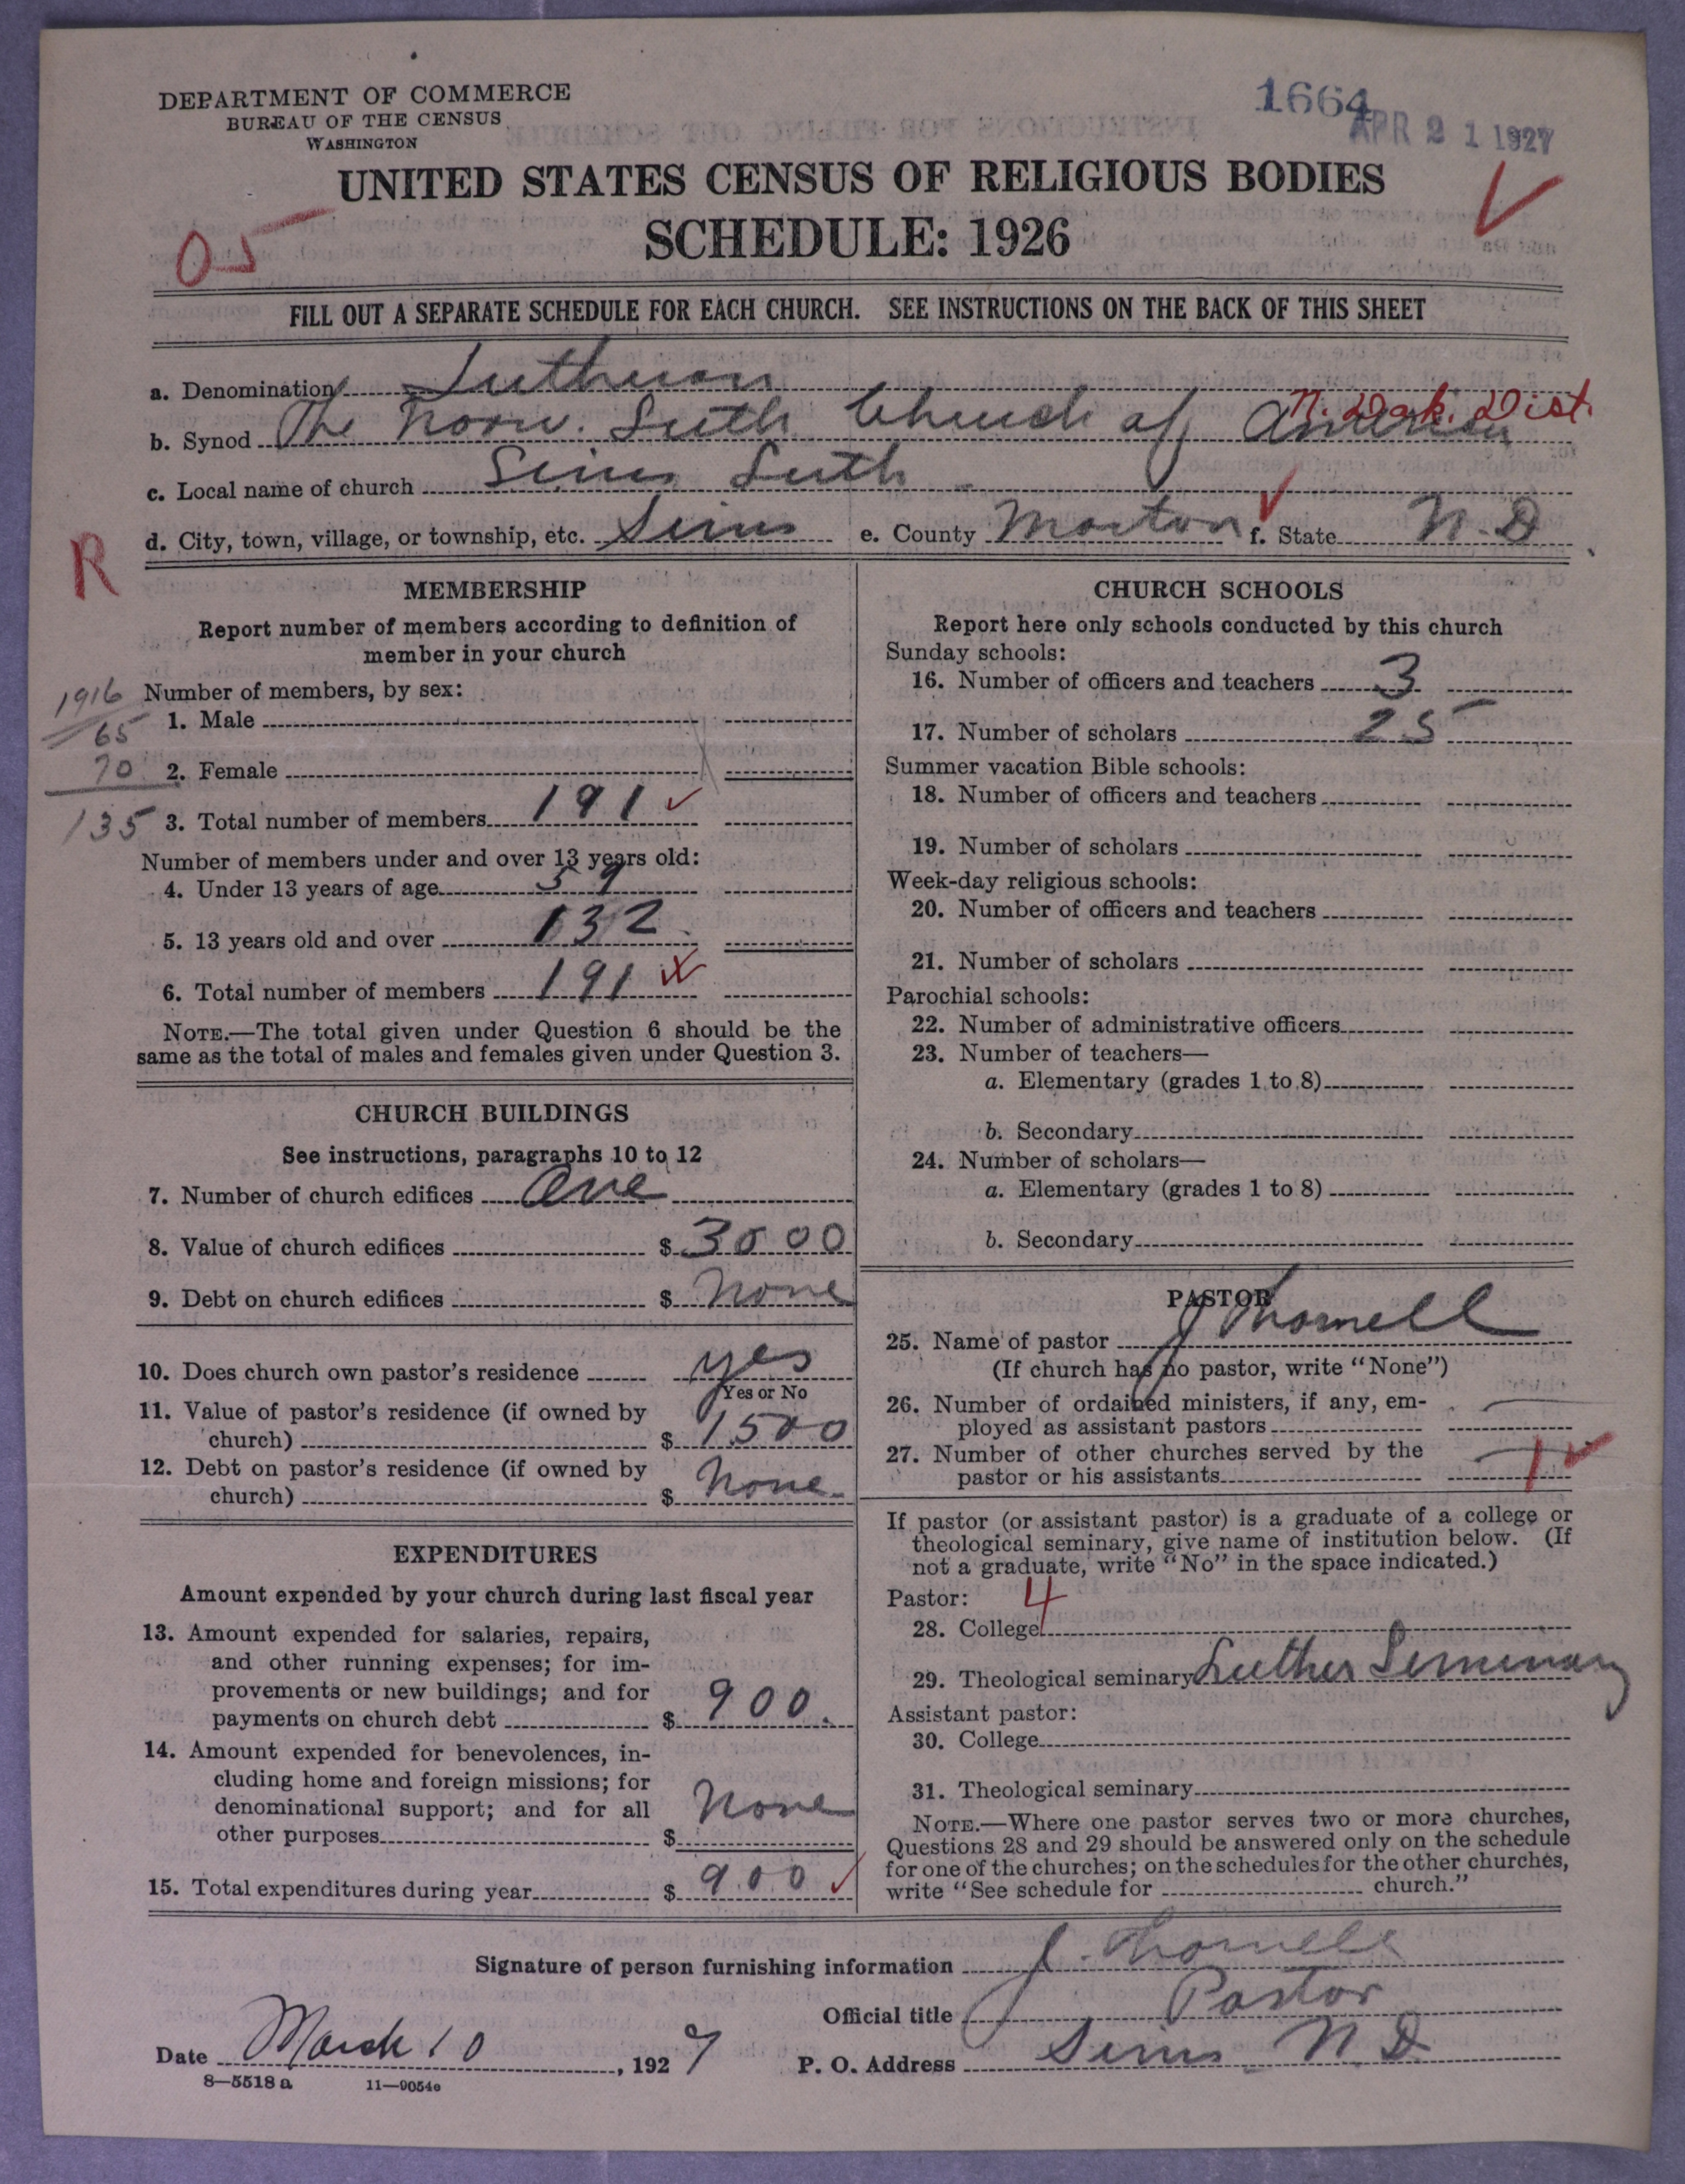 DEPARTMENT OF COMMERCE
BUREAU OF THE CENSUS
WASHINGTON
1664
APR 21 1927
UNITED STATES CENSUS OF RELIGIOUS BODIES
SCHEDULE: 1926
05
FILL OUT A SEPARATE SCHEDULE FOR EACH CHURCH. SEE INSTRUCTIONS ON THE BACK OF THIS SHEET
a. Denomination Lutheran
N. Dak. Dist.
b. Synod The Norw. Luth Church of America
c. Local name of church Sims Luth
d. City, town, village, or township, etc. Sims e. County Morton f. State N. D
R
MEMBERSHIP
Report number of members according to definition of
member in your church
1916
Number of members, by sex:
65 1. Male
70 2. Female
135 3. Total number of members 191
Number of members under and over 13 years old:
4. Under 13 years of age 59
5. 13 years old and over 132
6. Total number of members 191
NOTE.—The total given under Question 6 should be the
same as the total of males and females given under Question 3.
CHURCH BUILDINGS
See instructions, paragraphs 10 to 12
7. Number of church edifices One
8. Value of church edifices $ 3000
9. Debt on church edifices $ None
10. Does church own pastor's residence yes
Yes or No
11. Value of pastor's residence (if owned by
church) $ 1500
12. Debt on pastor's residence (if owned by
church) $ None
EXPENDITURES
Amount expended by your church during last fiscal year
13. Amount expended for salaries, repairs,
and other running expenses; for im-
provements or new buildings; and for
payments on church debt $ 900.
14. Amount expended for benevolences, in-
cluding home and foreign missions; for
denominational support; and for all
other purposes $ None
15. Total expenditures during year $ 900
CHURCH SCHOOLS
Report here only schools conducted by this church
Sunday schools:
16. Number of officers and teachers 3
17. Number of scholars 25
Summer vacation Bible schools:
18. Number of officers and teachers
19. Number of scholars
Week-day religious schools:
20. Number of officers and teachers
21. Number of scholars
Parochial schools:
22. Number of administrative officers
23. Number of teachers—
a. Elementary (grades 1 to 8)
b. Secondary
24. Number of scholars—
a. Elementary (grades 1 to 8)
b. Secondary
PASTOR
25. Name of pastor J Thomell
(If church has no pastor, write "None")
26. Number of ordained ministers, if any, em-
ployed as assistant pastors —
27. Number of other churches served by the
pastor or his assistants — 1
If pastor (or assistant pastor) is a graduate of a college or
theological seminary, give name of institution below. (If
not a graduate, write "No" in the space indicated.)
Pastor: 4
28. College
29. Theological seminary Luther Seminary
Assistant pastor:
30. College
31. Theological seminary
NOTE.—Where one pastor serves two or more churches,
Questions 28 and 29 should be answered only on the schedule
for one of the churches; on the schedules for the other churches,
write "See schedule for church."
Signature of person furnishing information J. Thomell
Official title Pastor
Date March 10, 1927 P. O. Address Sims N. D.
8—5518 a 11—9054e